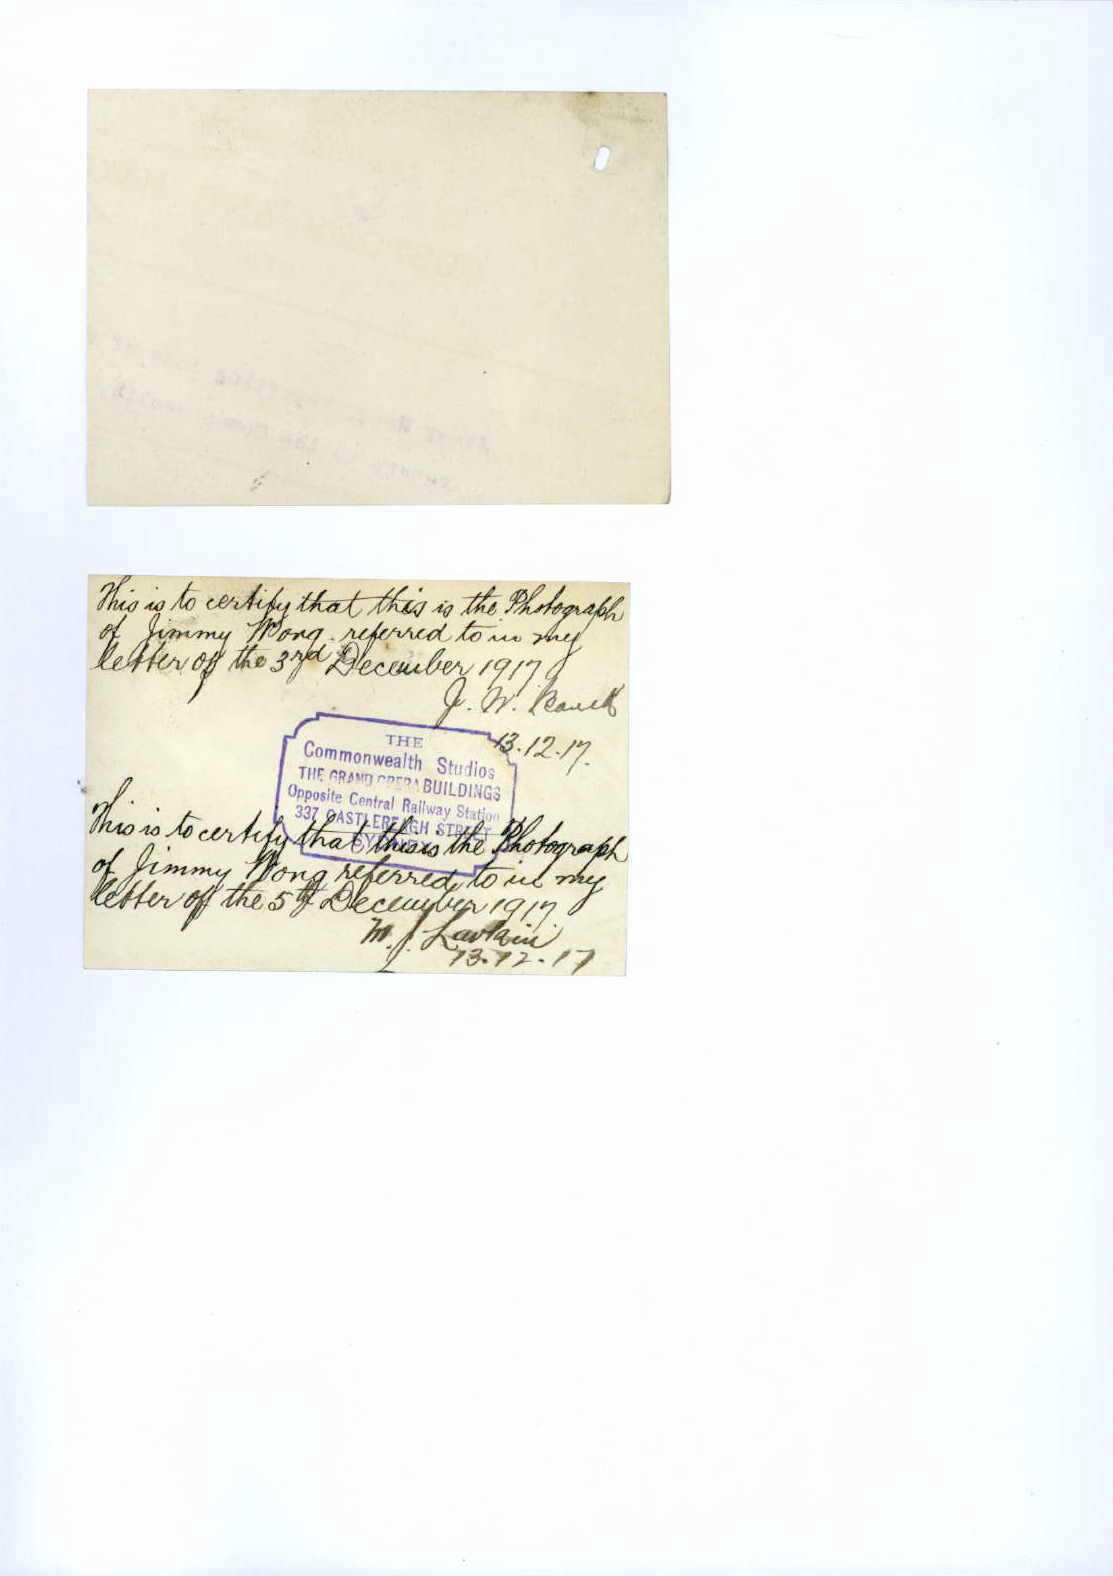 This is to certify that this is the Photograph
of Jimmy Wong. referred to in my
letter of the 3rd December 1917.
J. W.
13.12.17.
THE
Commonwealth Studios
THE GRAND OPERA BUILDINGS
Opposite Central Railway Station
337 CASTLEREAGH STREET
SYDNEY
This is to certify that this is the Photograph
of Jimmy Wong referred to in my
letter of the 5th December 1917.
M. J. Larkin
13.12.17